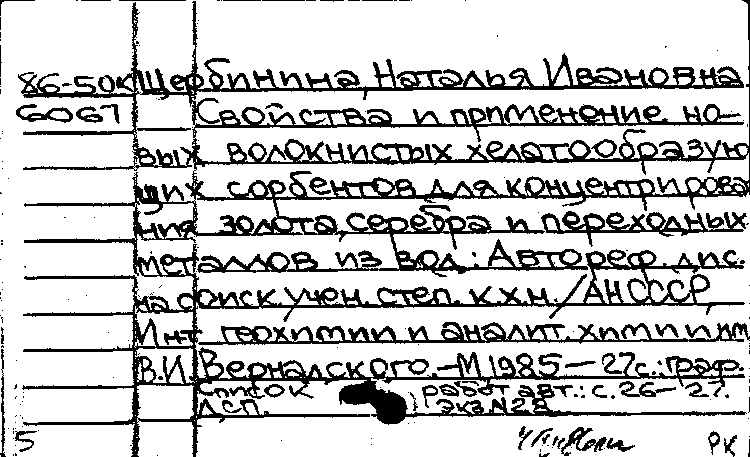 86-50к Щербинина, Наталья Ивановна.
6067 Свойства и применение но-
вых волокнистых хелатообразую
щих сорбентов для концентрирова
ния золота, серебра и переходных
металлов из вод.: Автореф. дис.
на соиск. учен. степ. к.х.н. /АН СССР,
Ин-т геохимии и аналит. химии им.
В.И. Вернадского. -М, 1985 - 27с.: граф.
Список работ авт.: с. 26-27.
Д.С.П. экз. N28
5 РК